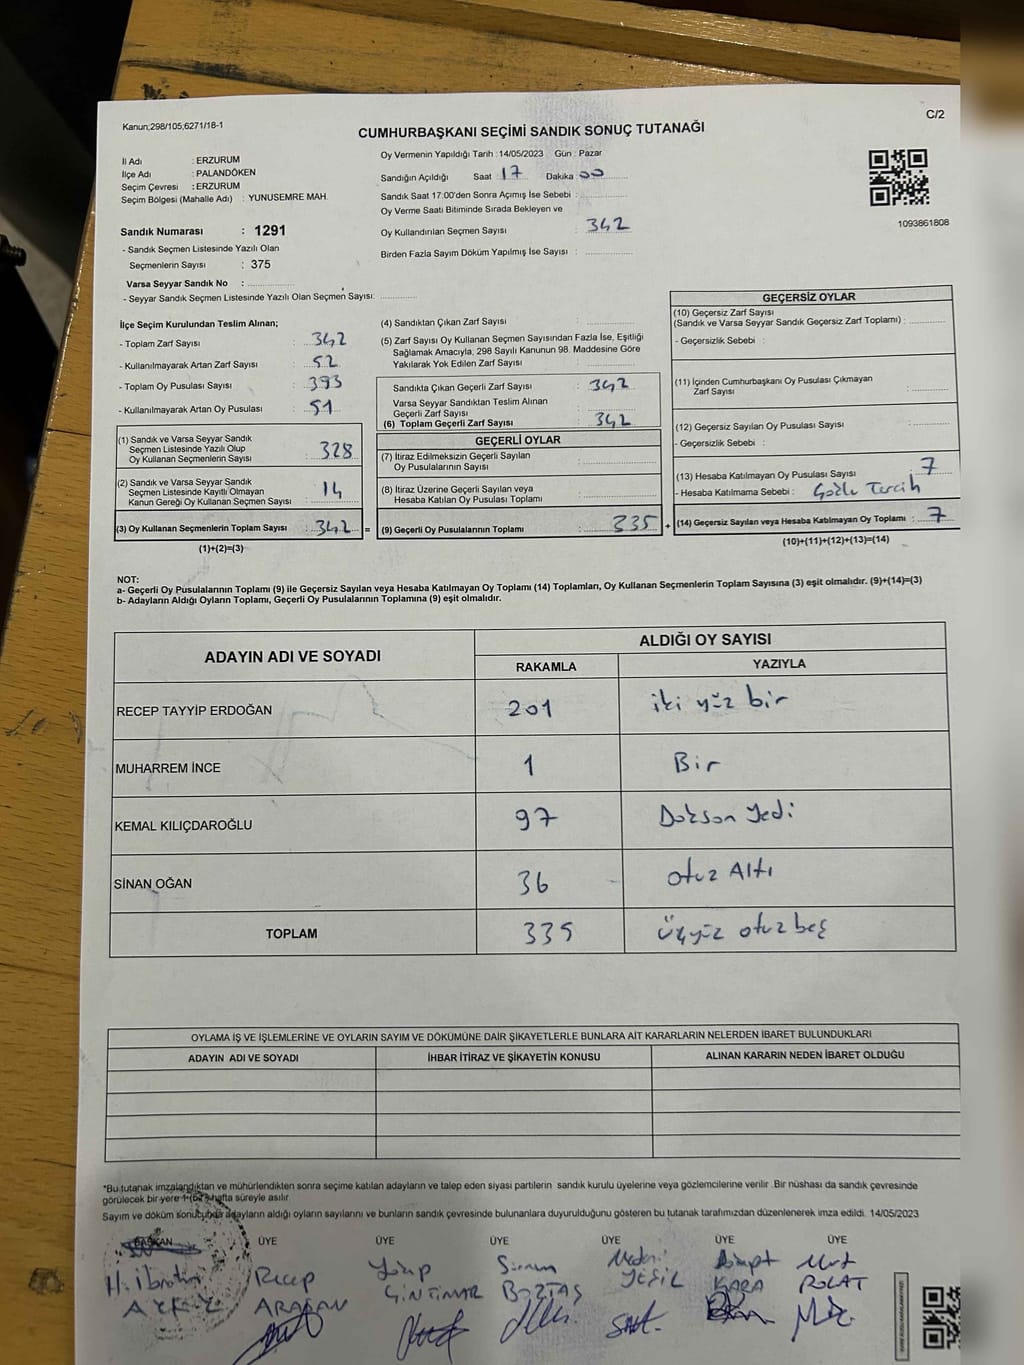 Kanun;298/105;6271/18-1
C/2
CUMHURBAŞKANI SEÇİMİ SANDIK SONUÇ TUTANAĞI
İl Adı : ERZURUM
İlçe Adı : PALANDÖKEN
Seçim Çevresi : ERZURUM
Seçim Bölgesi (Mahalle Adı) : YUNUSEMRE MAH.
Sandık Numarası : 1291
- Sandık Seçmen Listesinde Yazılı Olan
Seçmenlerin Sayısı : 375
Varsa Seyyar Sandık No :
- Seyyar Sandık Seçmen Listesinde Yazılı Olan Seçmen Sayısı:
Oy Vermenin Yapıldığı Tarih : 14/05/2023 Gün : Pazar
Sandığın Açıldığı Saat 17 Dakika 00
Sandık Saat 17:00'den Sonra Açımış İse Sebebi :
Oy Verme Saati Bitiminde Sırada Bekleyen ve
Oy Kullandırılan Seçmen Sayısı : 342
Birden Fazla Sayım Döküm Yapılmış İse Sayısı :
1093861808
İlçe Seçim Kurulundan Teslim Alınan;
- Toplam Zarf Sayısı : 342
- Kullanılmayarak Artan Zarf Sayısı : 52
- Toplam Oy Pusulası Sayısı : 393
- Kullanılmayarak Artan Oy Pusulası : 51
(1) Sandık ve Varsa Seyyar Sandık
Seçmen Listesinde Yazılı Olup
Oy Kullanan Seçmenlerin Sayısı : 328
(2) Sandık ve Varsa Seyyar Sandık
Seçmen Listesinde Kayıtlı Olmayan
Kanun Gereği Oy Kullanan Seçmen Sayısı : 14
(3) Oy Kullanan Seçmenlerin Toplam Sayısı : 342 =
(1)+(2)=(3)
(4) Sandıktan Çıkan Zarf Sayısı :
(5) Zarf Sayısı Oy Kullanan Seçmen Sayısından Fazla İse, Eşitliği
Sağlamak Amacıyla, 298 Sayılı Kanunun 98. Maddesine Göre
Yakılarak Yok Edilen Zarf Sayısı :
Sandıkta Çıkan Geçerli Zarf Sayısı : 342
Varsa Seyyar Sandıktan Teslim Alınan
Geçerli Zarf Sayısı :
(6) Toplam Geçerli Zarf Sayısı : 342
GEÇERLİ OYLAR
(7) İtiraz Edilmeksizin Geçerli Sayılan
Oy Pusulalarının Sayısı :
(8) İtiraz Üzerine Geçerli Sayılan veya
Hesaba Katılan Oy Pusulası Toplamı :
(9) Geçerli Oy Pusulalarının Toplamı : 335 +
GEÇERSİZ OYLAR
(10) Geçersiz Zarf Sayısı
(Sandık ve Varsa Seyyar Sandık Geçersiz Zarf Toplamı) :
- Geçersizlik Sebebi :
(11) İçinden Cumhurbaşkanı Oy Pusulası Çıkmayan
Zarf Sayısı :
(12) Geçersiz Sayılan Oy Pusulası Sayısı :
- Geçersizlik Sebebi :
(13) Hesaba Katılmayan Oy Pusulası Sayısı : 7
- Hesaba Katılmama Sebebi : Tercih
(14) Geçersiz Sayılan veya Hesaba Katılmayan Oy Toplamı : 7
(10)+(11)+(12)+(13)=(14)
NOT:
a- Geçerli Oy Pusulalarının Toplamı (9) ile Geçersiz Sayılan veya Hesaba Katılmayan Oy Toplamı (14) Toplamları, Oy Kullanan Seçmenlerin Toplam Sayısına (3) eşit olmalıdır. (9)+(14)=(3)
b- Adayların Aldığı Oyların Toplamı, Geçerli Oy Pusulalarının Toplamına (9) eşit olmalıdır.
ADAYIN ADI VE SOYADI
ALDIĞI OY SAYISI
RAKAMLA YAZIYLA
RECEP TAYYİP ERDOĞAN 201 iki yüz bir
MUHARREM İNCE 1 Bir
KEMAL KILIÇDAROĞLU 97 Doksan Yedi
SİNAN OĞAN 36 otuz Altı
TOPLAM 335 üçyüz otuz beş
OYLAMA İŞ VE İŞLEMLERİNE VE OYLARIN SAYIM VE DÖKÜMÜNE DAİR ŞİKAYETLERLE BUNLARA AİT KARARLARIN NELERDEN İBARET BULUNDUKLARI
ADAYIN ADI VE SOYADI İHBAR İTİRAZ VE ŞİKAYETİN KONUSU ALINAN KARARIN NEDEN İBARET OLDUĞU
*Bu tutanak imzalandıktan ve mühürlendikten sonra seçime katılan adayların ve talep eden siyasi partilerin sandık kurulu üyelerine veya gözlemcilerine verilir. Bir nüshası da sandık çevresinde
görülecek bir yere 1 (bir) hafta süreyle asılır.
Sayım ve döküm sonucunda adayların aldığı oyların sayılarını ve bunların sandık çevresinde bulunanlara duyurulduğunu gösteren bu tutanak tarafımızdan düzenlenerek imza edildi. 14/05/2023
BAŞKAN ÜYE ÜYE ÜYE ÜYE ÜYE ÜYE
H. İbrahim Recep Sinem
BOZTAŞ YEŞİL KARA POLAT